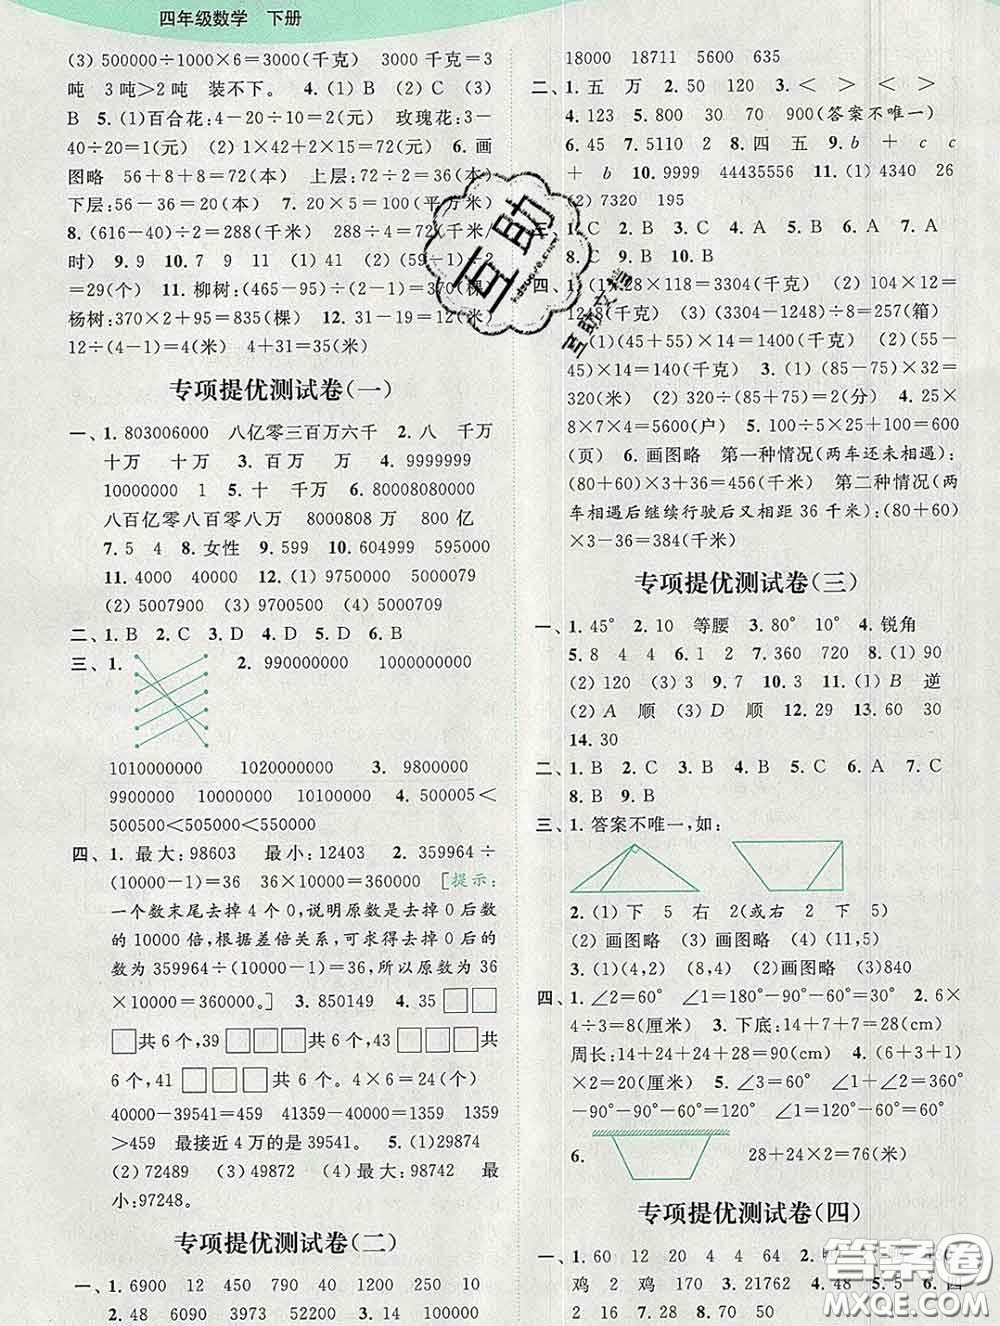 四年级数学 下册
(3) 500000÷1000×6=3000(千克) 3000 千克=3
吨 3 吨>2 吨 装不下。 4. (1) B (2) C (3)
B 5. (1)百合花:4-20÷10=2(元) 玫瑰花:3-
40÷20=1(元) (2) 1×42+2×15=72(元) 6. 画
图略 56+8+8=72(本) 上层:72÷2=36(本)
下层:56-36=20(本) 7. 20×5=100(平方米)
8. (616-40)÷2=288(千米) 288÷4=72(千米/
时) 9. 9 10. 7 9 11 (1) 41 (2) (59-1)÷2
=29(个) 11. 柳树:(465-95)÷(2-1)=370(棵)
杨树:370×2+95=835(棵) 12. 31-19=12(米)
12÷(4-1)=4(米) 4+31=35(米)
专项提优测试卷(一)
一、1. 803006000 八亿零三百万六千 2. 八 千万
十万 十万 3. 百万 万 4. 9999999
10000000 1 5. 十 千万 6. 80008080000
八百亿零八百零八万 8000808 万 800 亿
7. 5 4 8. 女性 9. 599 10. 604999 595000
11. 4000 40000 12. (1) 9750000 5000079
(2) 5007900 (3) 9700500 (4) 5000709
二、1. B 2. C 3. D 4. D 5. D 6. B
三、1. 2. 990000000 1000000000
1010000000 1020000000 3. 9800000
9900000 10000000 10100000 4. 500005<
500500<505000<550000
四、1. 最大:98603 最小:12403 2. 359964÷
(10000-1)=36 36×10000=360000 [提示:
一个数末尾去掉 4 个 0,说明原数是去掉 0 后数
的 10000 倍,根据差倍关系,可求得去掉 0 后的
数为 359964÷(10000-1)=36,所以原数为 36
×10000=360000。] 3. 850149 4. 35□□
□共 6 个,39□□□共 6 个,43□□□共
6 个,41□□□共 6 个。4×6=24(个)
40000-39541=459 41359-40000=1359 1359
>459 最接近 4 万的是 39541。 5. (1) 29874
(2) 72489 (3) 49872 (4) 最大:98742 最
小:97248。
专项提优测试卷(二)
一、1. 6900 12 450 790 40 1200 250 10
2. 48 6090 3973 52200 14 400 100000
18000 18711 5600 635
二、1. 五 万 2. 50 120 3. < > > <
4. 123 5. 800 30 70 900(答案不唯一)
6. 45 7. 5110 2 8. 四 五 9. b + c c
+ b 10. 9999 44435556 11. (1) 4340 26
(2) 7320 195
1. C 2. B 3. C 4. B 5. A 6. A 7. A
8. C 9. B 10. C
四、1. (1) 28×118=3304(千克) (2) 104×12=
1248(千克) (3) (3304-1248)÷8=257(箱)
(1) (45+55)×14=1400(千克) (2) (55-
45)×14=140(千克) 3. (1) (85-75)×32=
320(米) (2) 320÷(85+75)=2(分) 4. 25×
8×7×4=5600(户) 5. 100÷5×(40+5)=900
(页) 6. 画图略 第一种情况(两车还未相遇):
(80+60)×3+36=456(千米) 第二种情况(两
车相遇后继续行驶后又相距 36 千米):(80+60)
×3-36=384(千米)
专项提优测试卷(三)
一、1. 45° 2. 10 等腰 3. 80° 10° 4. 锐角
5. 8 4 4 6. 1 2 7. 360 720 8. (1) 90
(2) 120 (3) 3 9. 7 10. 3 11. (1) B 逆
(2) A 顺 (3) D 顺 12. 29 13. 60 30
14. 30
二、1. B 2. C 3. B 4. C 5. C 6. A 7. C
8. B 9. B
三、1. 答案不唯一,如:
2. (1) 下 5 右 2(或右 2 下 5)
(2) 画图略 (3) 画图略 (4) (11,5)
3. (1) (4,2) (8,4) (2)画图略 (3)840
四、1. ∠2=60° ∠1=180°-90°-60°=30° 2. 6×
4÷3=8(厘米) 3. 下底:14+7+7=28(cm)
周长:14+24+24+28=90(cm) 4. (6+4)
×2=20(厘米) 5. ∠3=60° ∠1+∠2=360°
-90°-90°-60°=120° ∠1=∠2=60°
6. 28+24×2=76(米)
专项提优测试卷(四)
一、1. 60 12 20 4 4 64 2.
鸡 2 鸡 170 3. 21762 4. 48 5. 5 6. 四
2 16 7. 28 8. 70 50
互助
kdzuoye.com
答案圈
MXQE.COM